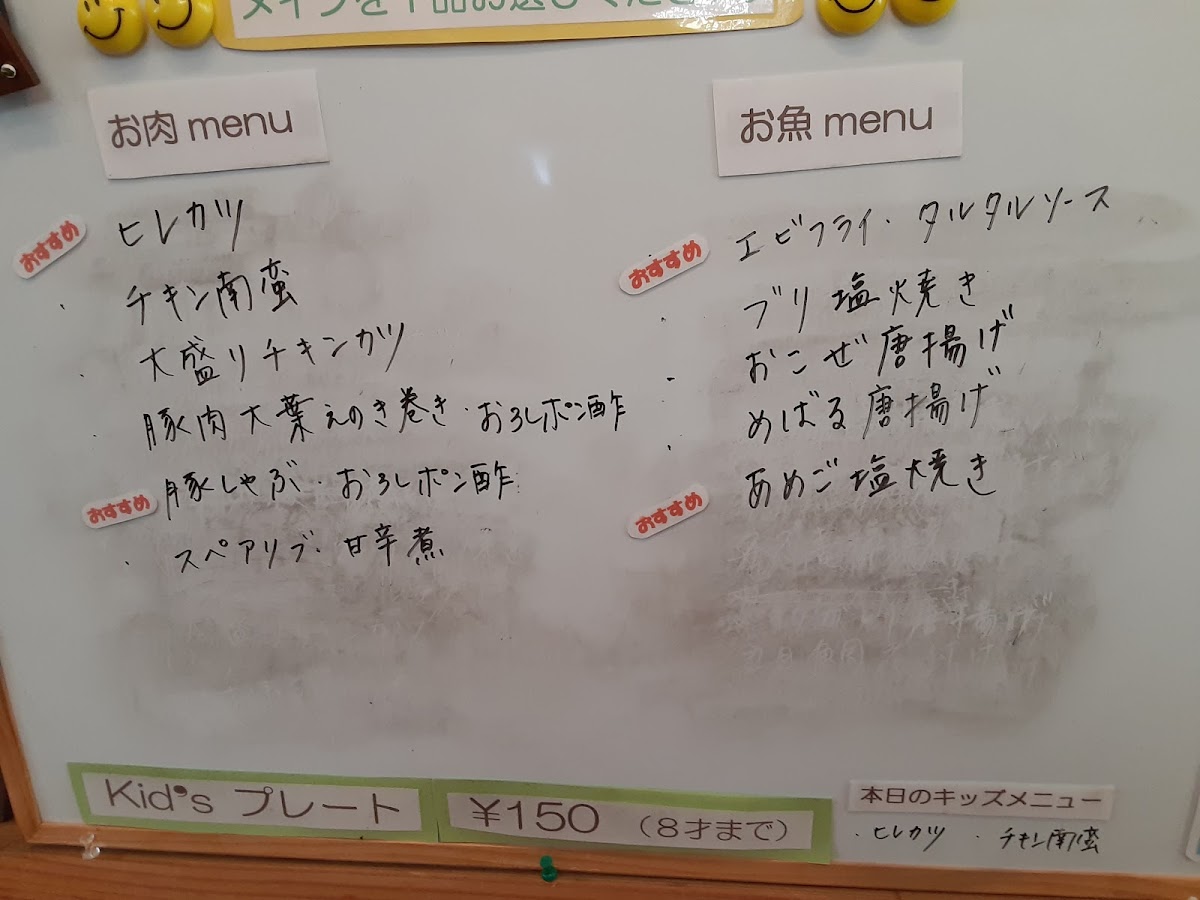 メインを1品お選びくださ
お肉 menu
おすすめ
ヒレカツ
・チキン南蛮
・大盛りチキンカツ
・豚肉大葉えのき巻き・おろしポン酢
おすすめ
豚しゃぶ・おろしポン酢
・スペアリブ・甘辛煮
お魚 menu
おすすめ
エビフライ・タルタルソース
・ブリ塩焼き
・おこぜ唐揚げ
・めばる唐揚げ
おすすめ
あめご塩焼き
Kid's プレート
¥150 (8才まで)
本日のキッズメニュー
・ヒレカツ ・チキン南蛮